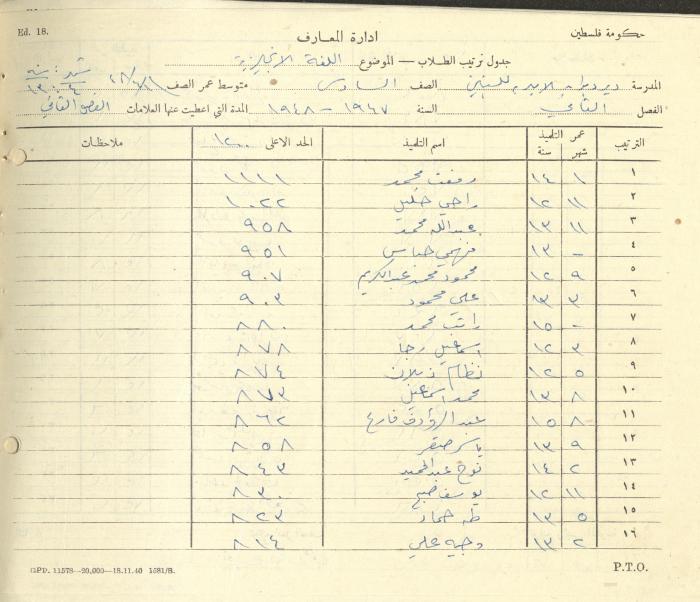 Ed. 18.
حكومة فلسطين
ادارة المعارف
جدول ترتيب الطلاب — الموضوع اللغة الانجليزية
المدرسة للبنين الصف السادس متوسط عمر الصف
الفصل الثاني السنة ١٩٤٧ - ١٩٤٨ المدة التي اعطيت عنها العلامات الفصل الثاني
الترتيب عمر التلميذ شهر سنة اسم التلميذ الحد الاعلى ١٢٠٠ ملاحظات
١ ١ ١٤ رفعت محمد ١١١١
٢ ١١ ١٢ راجي خليل ١٠٢٢
٣ ١١ ١٣ عبدالله محمد ٩٥٨
٤ - ١٣ فهمي عباس ٩٥١
٥ ٩ ١٢ محمود محمد عبدالكريم ٩٠٧
٦ ٣ ١٣ علي محمود ٩٠٣
٧ - ١٥ راتب محمد ٨٨٠
٨ ٣ ١٢ اسماعيل رجا ٨٧٨
٩ ٥ ١٢ نظام ٨٧٤
١٠ ٨ ١٣ محمد اسماعيل ٨٧٣
١١ ٨ ١٥ عبد الرؤوف فارع ٨٦٢
١٢ ٩ ١٣ ياسر صقر ٨٥٨
١٣ ٢ ١٤ نوح عبدالحميد ٨٤٣
١٤ ١١ ١٢ يوسف صبح ٨٣٠
١٥ ٥ ١٣ طه حماد ٨٢٣
١٦ ٢ ١٣ وجيه علي ٨١٤
GPP. 11578—20,000—18.11.40 1581/B.
P.T.O.